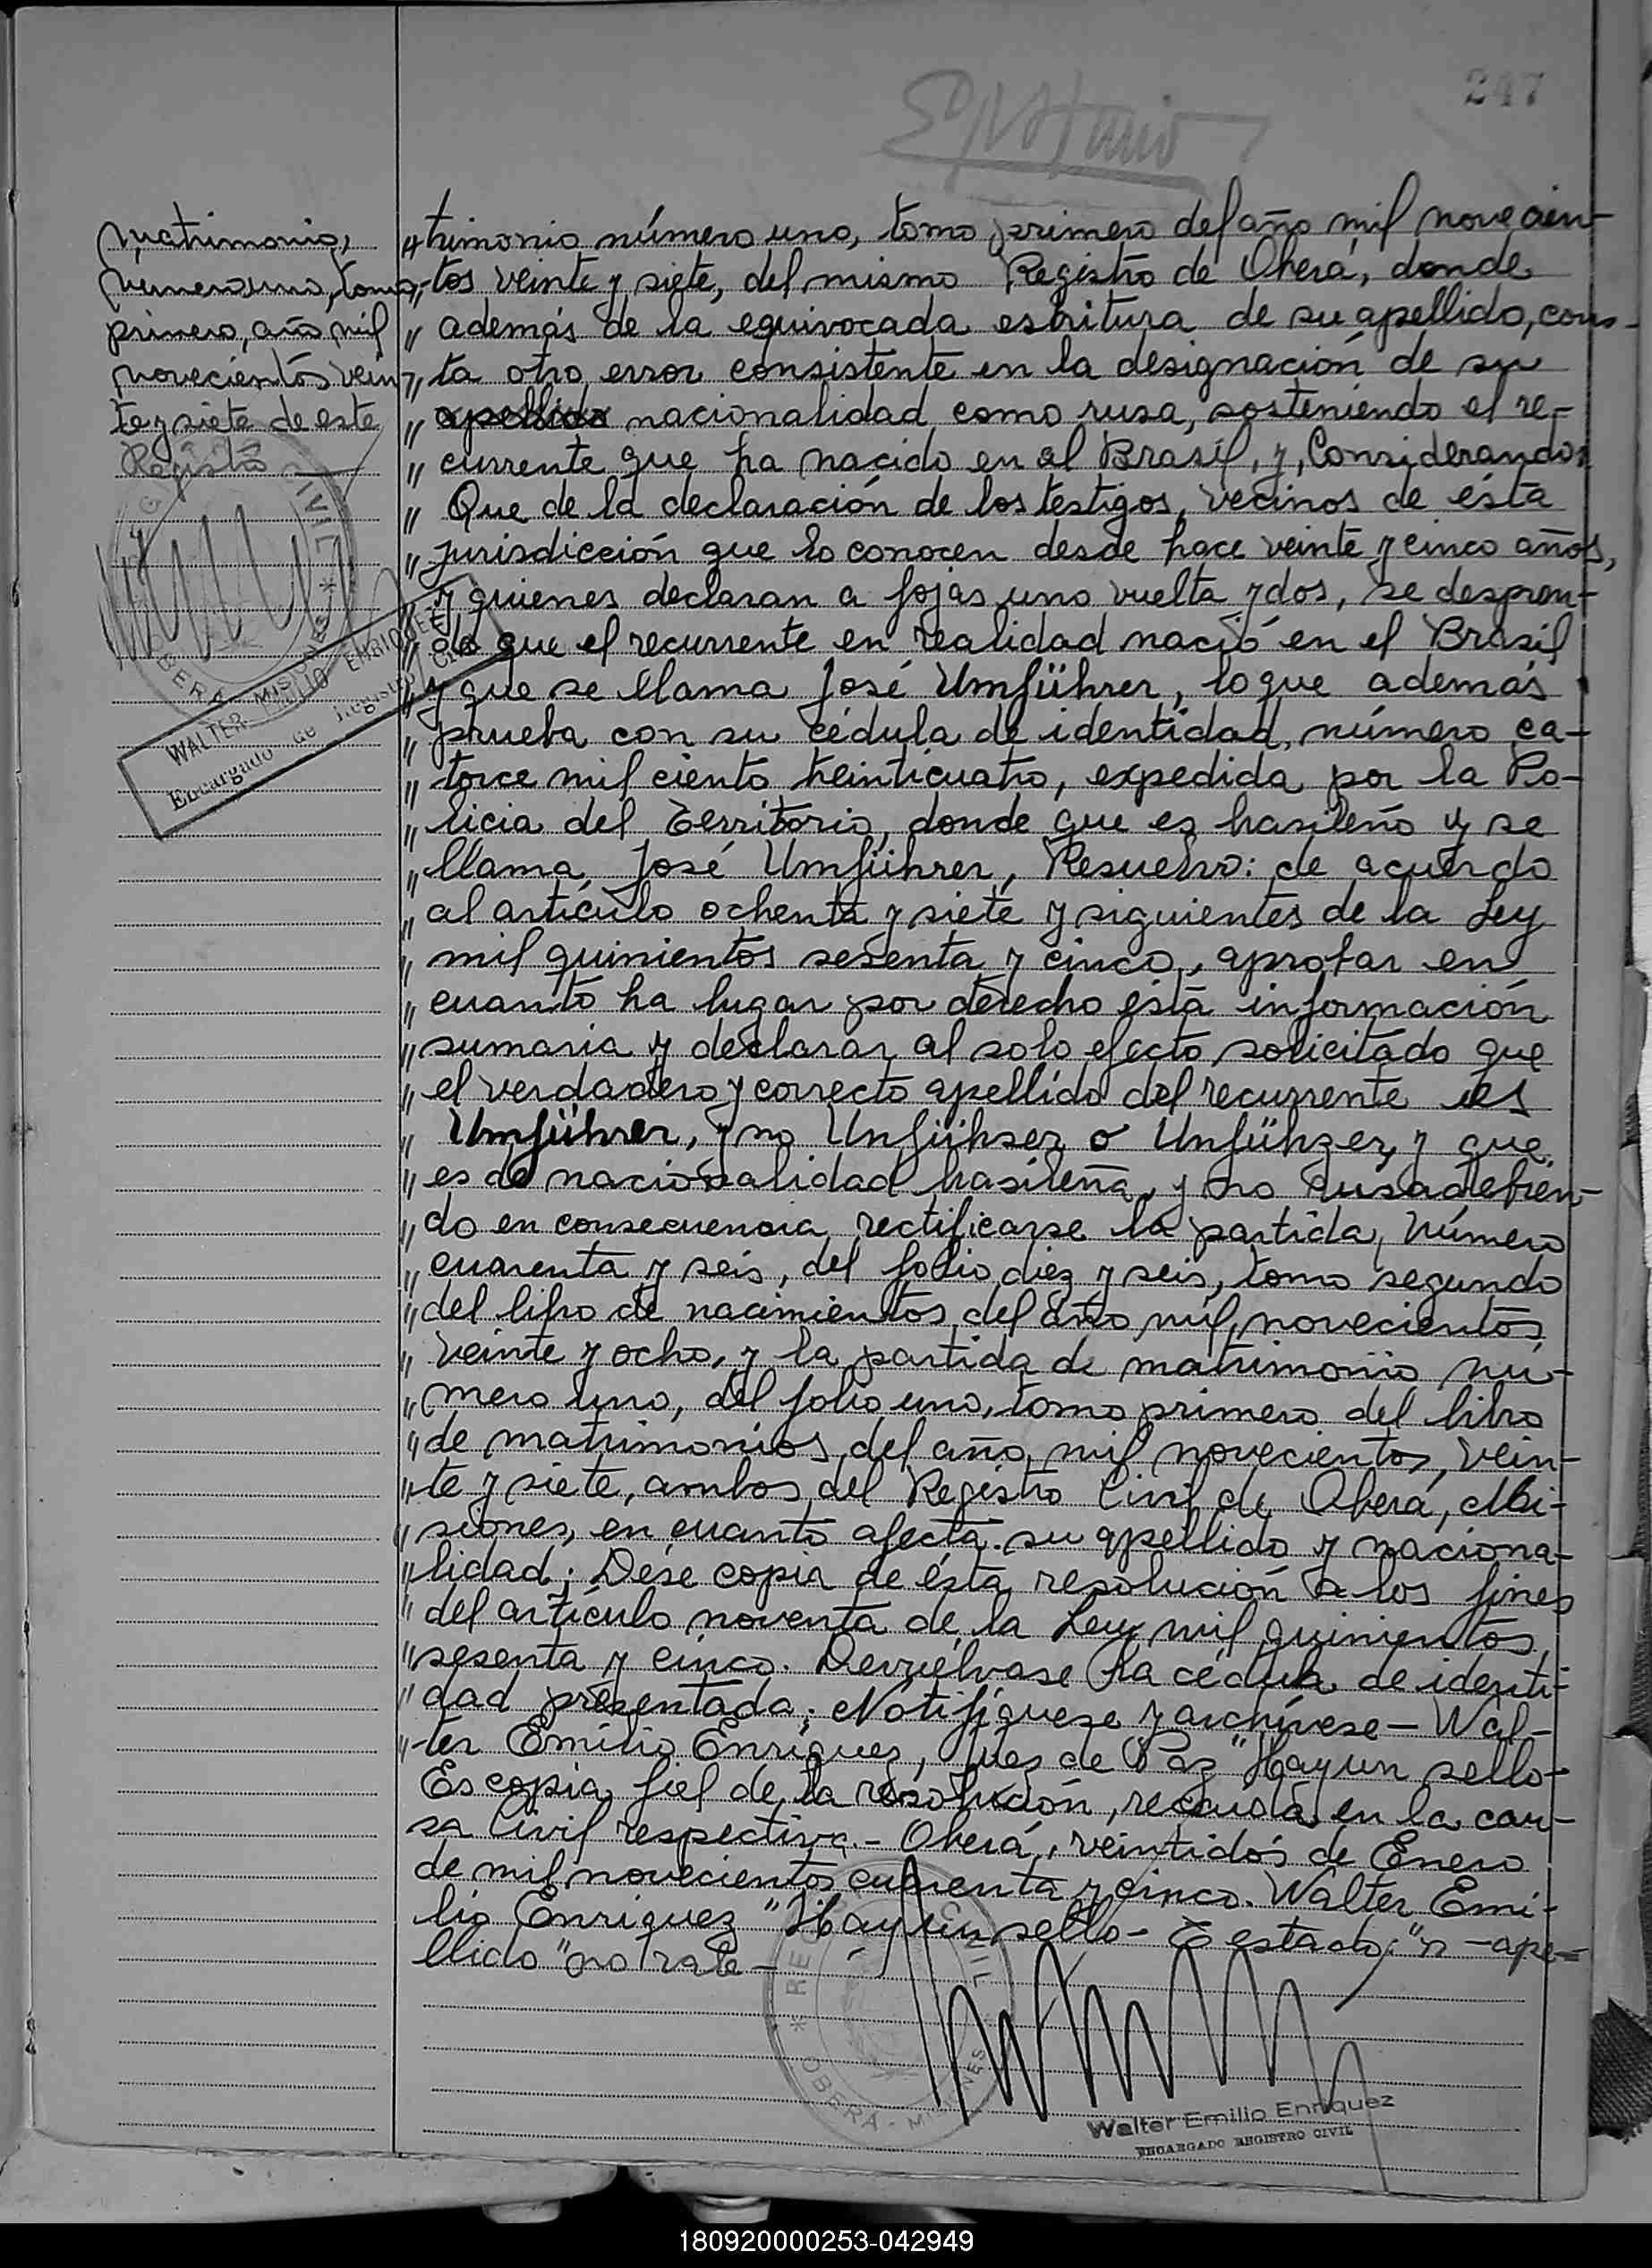 247
matrimonio,
numero uno, tomo
primero, año mil
novecientos vein-
te y siete de este
Registro
CIVIL
OBERA - MISIONES
WALTER EMILIO ENRIQUEZ
Encargado de Registro Civil
"trimonio número uno, tomo primero del año mil novecien-
"tos veinte y siete, del mismo Registro de Oberá, donde
" además de la equivocada escritura de su apellido, cons-
" ta otro error consistente en la designación de su
" apellido nacionalidad como rusa, sosteniendo el re-
" currente que ha nacido en el Brasil, y, Considerando:
" Que de la declaración de los testigos, vecinos de ésta
" jurisdicción que lo conocen desde hace veinte y cinco años,
" y quienes declaran a fojas uno vuelta y dos, se despren-
" de que el recurrente en realidad nació en el Brasil
" y que se llama José Umführer, lo que además
" prueba con su cédula de identidad, número ca-
" torce mil ciento treinticuatro, expedida por la Po-
" licia del Territorio, donde que es brasileño y se
" llama José Umführer, Resuelvo: de acuerdo
" al artículo ochenta y siete y siguientes de la Ley
" mil quinientos sesenta y cinco, aprobar en
" cuanto ha lugar por derecho ésta información
" sumaria y declarar al solo efecto solicitado que
" el verdadero y correcto apellido del recurrente es
" Umführer, y no Unfühser o Unfühzer, y que
" es de nacionalidad brasileña, y no rusa debien-
" do en consecuencia rectificarse la partida, número
" cuarenta y seis, del folio diez y seis, tomo segundo
" del libro de nacimientos del año mil novecientos
" veinte y ocho, y la partida de matrimonio nú-
" mero uno, del folio uno, tomo primero del libro
" de matrimonios del año mil novecientos, vein-
" te y siete, ambos del Registro Civil de Oberá, Mi-
" siones, en cuanto afecta su apellido y naciona-
" lidad; Dése copia de ésta resolución a los fines
" del artículo noventa de la Ley mil quinientos
" sesenta y cinco. Devuélvase la cédula de identi-
" dad presentada; Notifíquese y archívese - Wal-
" ter Emilio Enriquez, Juez de Paz" Hay un sello-
Es copia fiel de la resolución, recaida en la cau-
sa Civil respectiva.- Oberá, veintidós de Enero
de mil novecientos cuarenta y cinco. Walter Emi-
lio Enriquez "Hay un sello- Testado: "n -ape=
llido "no vale-
REGISTRO CIVIL
OBERA - MISIONES
Walter Emilio Enriquez
ENCARGADO REGISTRO CIVIL
180920000253-042949